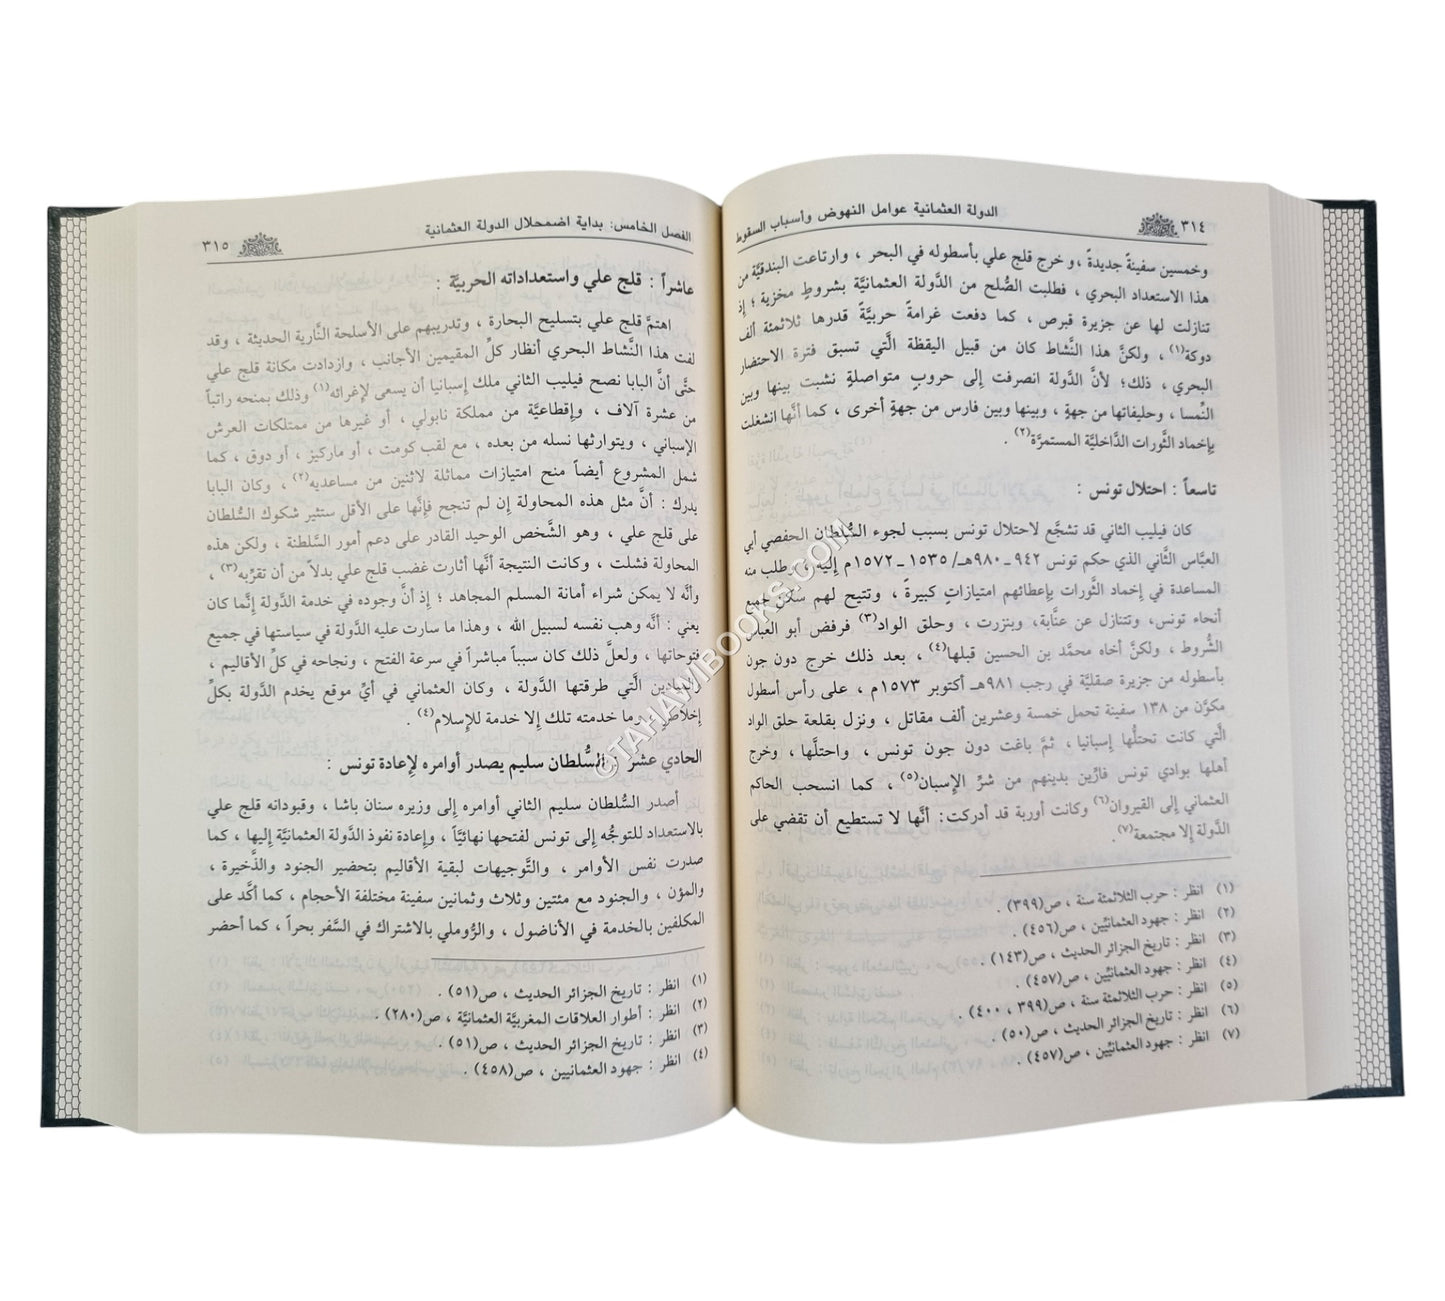 ٣١٤ الدولة العثمانية عوامل النهوض وأسباب السقوط
وخمسين سفينةً جديدةً ،و خرج قلج علي بأسطوله في البحر ، وارتاعت البندقيَّة من
هذا الاستعداد البحري ، فطلبت الصُّلح من الدَّولة العثمانيَّة بشروطٍ مخزية ؛ إذ
تنازلت لها عن جزيرة قبرص ، كما دفعت غرامةً حربيَّةً قدرها ثلاثمئة ألف
دوكة(١) ، ولكنَّ هذا النَّشاط كان من قبيل اليقظة الَّتي تسبق فترة الاحتضار
البحري ، ذلك؛ لأنَّ الدَّولة انصرفت إلى حروبٍ متواصلةٍ نشبت بينها وبين
النِّمسا ، وحليفاتها من جهةٍ ، وبينها وبين فارس من جهةٍ أخرى ، كما أنَّها انشغلت
بإخماد الثَّورات الدَّاخليَّة المستمرَّة(٢) .
تاسعاً : احتلال تونس :
كان فيليب الثاني قد تشجَّع لاحتلال تونس بسبب لجوء السُّلطان الحفصي أبي
العبَّاس الثَّاني الذي حكم تونس ٩٤٢ ـ ٩٨٠هـ/ ١٥٣٥ ـ ١٥٧٢م إليه ، وطلب منه
المساعدة في إخماد الثَّورات بإعطائهم امتيازاتٍ كبيرةً ، وتتيح لهم سكن جميع
أنحاء تونس، وتتنازل عن عنَّابة، وبنزرت ، وحلق الواد(٣) فرفض أبو العباس
الشُّروط ، ولكنَّ أخاه محمَّد بن الحسين قبلها(٤) ، بعد ذلك خرج دون جون
بأسطوله من جزيرة صقليَّة في رجب ٩٨١هـ أكتوبر ١٥٧٣م ، على رأس أسطول
مكوَّن من ١٣٨ سفينة تحمل خمسة وعشرين ألف مقاتل ، ونزل بقلعة حلق الواد
الَّتي كانت تحتلُّها إسبانيا ، ثمَّ باغت دون جون تونس ، واحتلَّها ، وخرج
أهلها بوادي تونس فارِّين بدينهم من شرِّ الإسبان(٥) ، كما انسحب الحاكم
العثماني إلى القيروان(٦) وكانت أوربة قد أدركت: أنَّها لا تستطيع أن تقضي على
الدَّولة إلا مجتمعة(٧).
(١) انظر : حرب الثلاثمئة سنة ، ص(٣٩٩) .
(٢) انظر : جهود العثمانيِّين ، ص(٤٥٦) .
(٣) انظر : تاريخ الجزائر الحديث ، ص(١٤٣) .
(٤) انظر : جهود العثمانيِّين ، ص(٤٥٧) .
(٥) انظر : حرب الثلاثمئة سنة ، ص(٣٩٩ ، ٤٠٠) .
(٦) انظر : تاريخ الجزائر الحديث ، ص(٥٠) .
(٧) انظر : جهود العثمانيِّين ، ص(٤٥٧) .
الفصل الخامس: بداية اضمحلال الدولة العثمانية ٣١٥
عاشراً : قلج علي واستعداداته الحربيَّة :
اهتمَّ قلج علي بتسليح البحارة ، وتدريبهم على الأسلحة النَّارية الحديثة ، وقد
لفت هذا النَّشاط البحري أنظار كلِّ المقيمين الأجانب ، وازدادت مكانة قلج علي
حتَّى أنَّ البابا نصح فيليب الثاني ملك إسبانيا أن يسعى لإغرائه(١) وذلك بمنحه راتباً
من عشرة آلاف ، وإقطاعيَّة من مملكة نابولي ، أو غيرها من ممتلكات العرش
الإسباني ، ويتوارثها نسله من بعده ، مع لقب كومت ، أو ماركيز ، أو دوق ، كما
شمل المشروع أيضاً منح امتيازات مماثلة لاثنين من مساعديه(٢) ، وكان البابا
يدرك : أنَّ مثل هذه المحاولة إن لم تنجح فإنَّها على الأقل ستثير شكوك السُّلطان
على قلج علي ، وهو الشَّخص الوحيد القادر على دعم أمور السَّلطنة ، ولكن هذه
المحاولة فشلت ، وكانت النتيجة أنَّها أثارت غضب قلج علي بدلاً من أن تقرِّبه(٣) ،
وأنَّه لا يمكن شراء أمانة المسلم المجاهد ؛ إذ أنَّ وجوده في خدمة الدَّولة إنَّما كان
يعني : أنَّه وهب نفسه لسبيل الله ، وهذا ما سارت عليه الدَّولة في سياستها في جميع
فتوحاتها ، ولعلَّ ذلك كان سبباً مباشراً في سرعة الفتح ، ونجاحه في كلِّ الأقاليم ،
والميادين الَّتي طرقتها الدَّولة ، وكان العثماني في أيِّ موقع يخدم الدَّولة بكلِّ
إخلاصٍ ، وما خدمته تلك إلا خدمة للإسلام(٤) .
الحادي عشر : السُّلطان سليم يصدر أوامره لإعادة تونس :
أصدر السُّلطان سليم الثاني أوامره إلى وزيره سنان باشا ، وقبودانه قلج علي
بالاستعداد للتوجُّه إلى تونس لفتحها نهائيَّاً ، وإعادة نفوذ الدَّولة العثمانيَّة إليها ، كما
صدرت نفس الأوامر ، والتَّوجيهات لبقية الأقاليم بتحضير الجنود والذَّخيرة ،
والمؤن ، والجنود مع مئتين وثلاث وثمانين سفينة مختلفة الأحجام ، كما أكَّد على
المكلفين بالخدمة في الأناضول ، والرُّوملي بالاشتراك في السَّفر بحراً ، كما أحضر
(١) انظر : تاريخ الجزائر الحديث ، ص(٥١) .
(٢) انظر : أطوار العلاقات المغربيَّة العثمانيَّة ، ص(٢٨٠) .
(٣) انظر : تاريخ الجزائر الحديث ، ص(٥١) .
(٤) انظر : جهود العثمانيين ، ص(٤٥٨) .
©TAHAWIBOOKS.COM